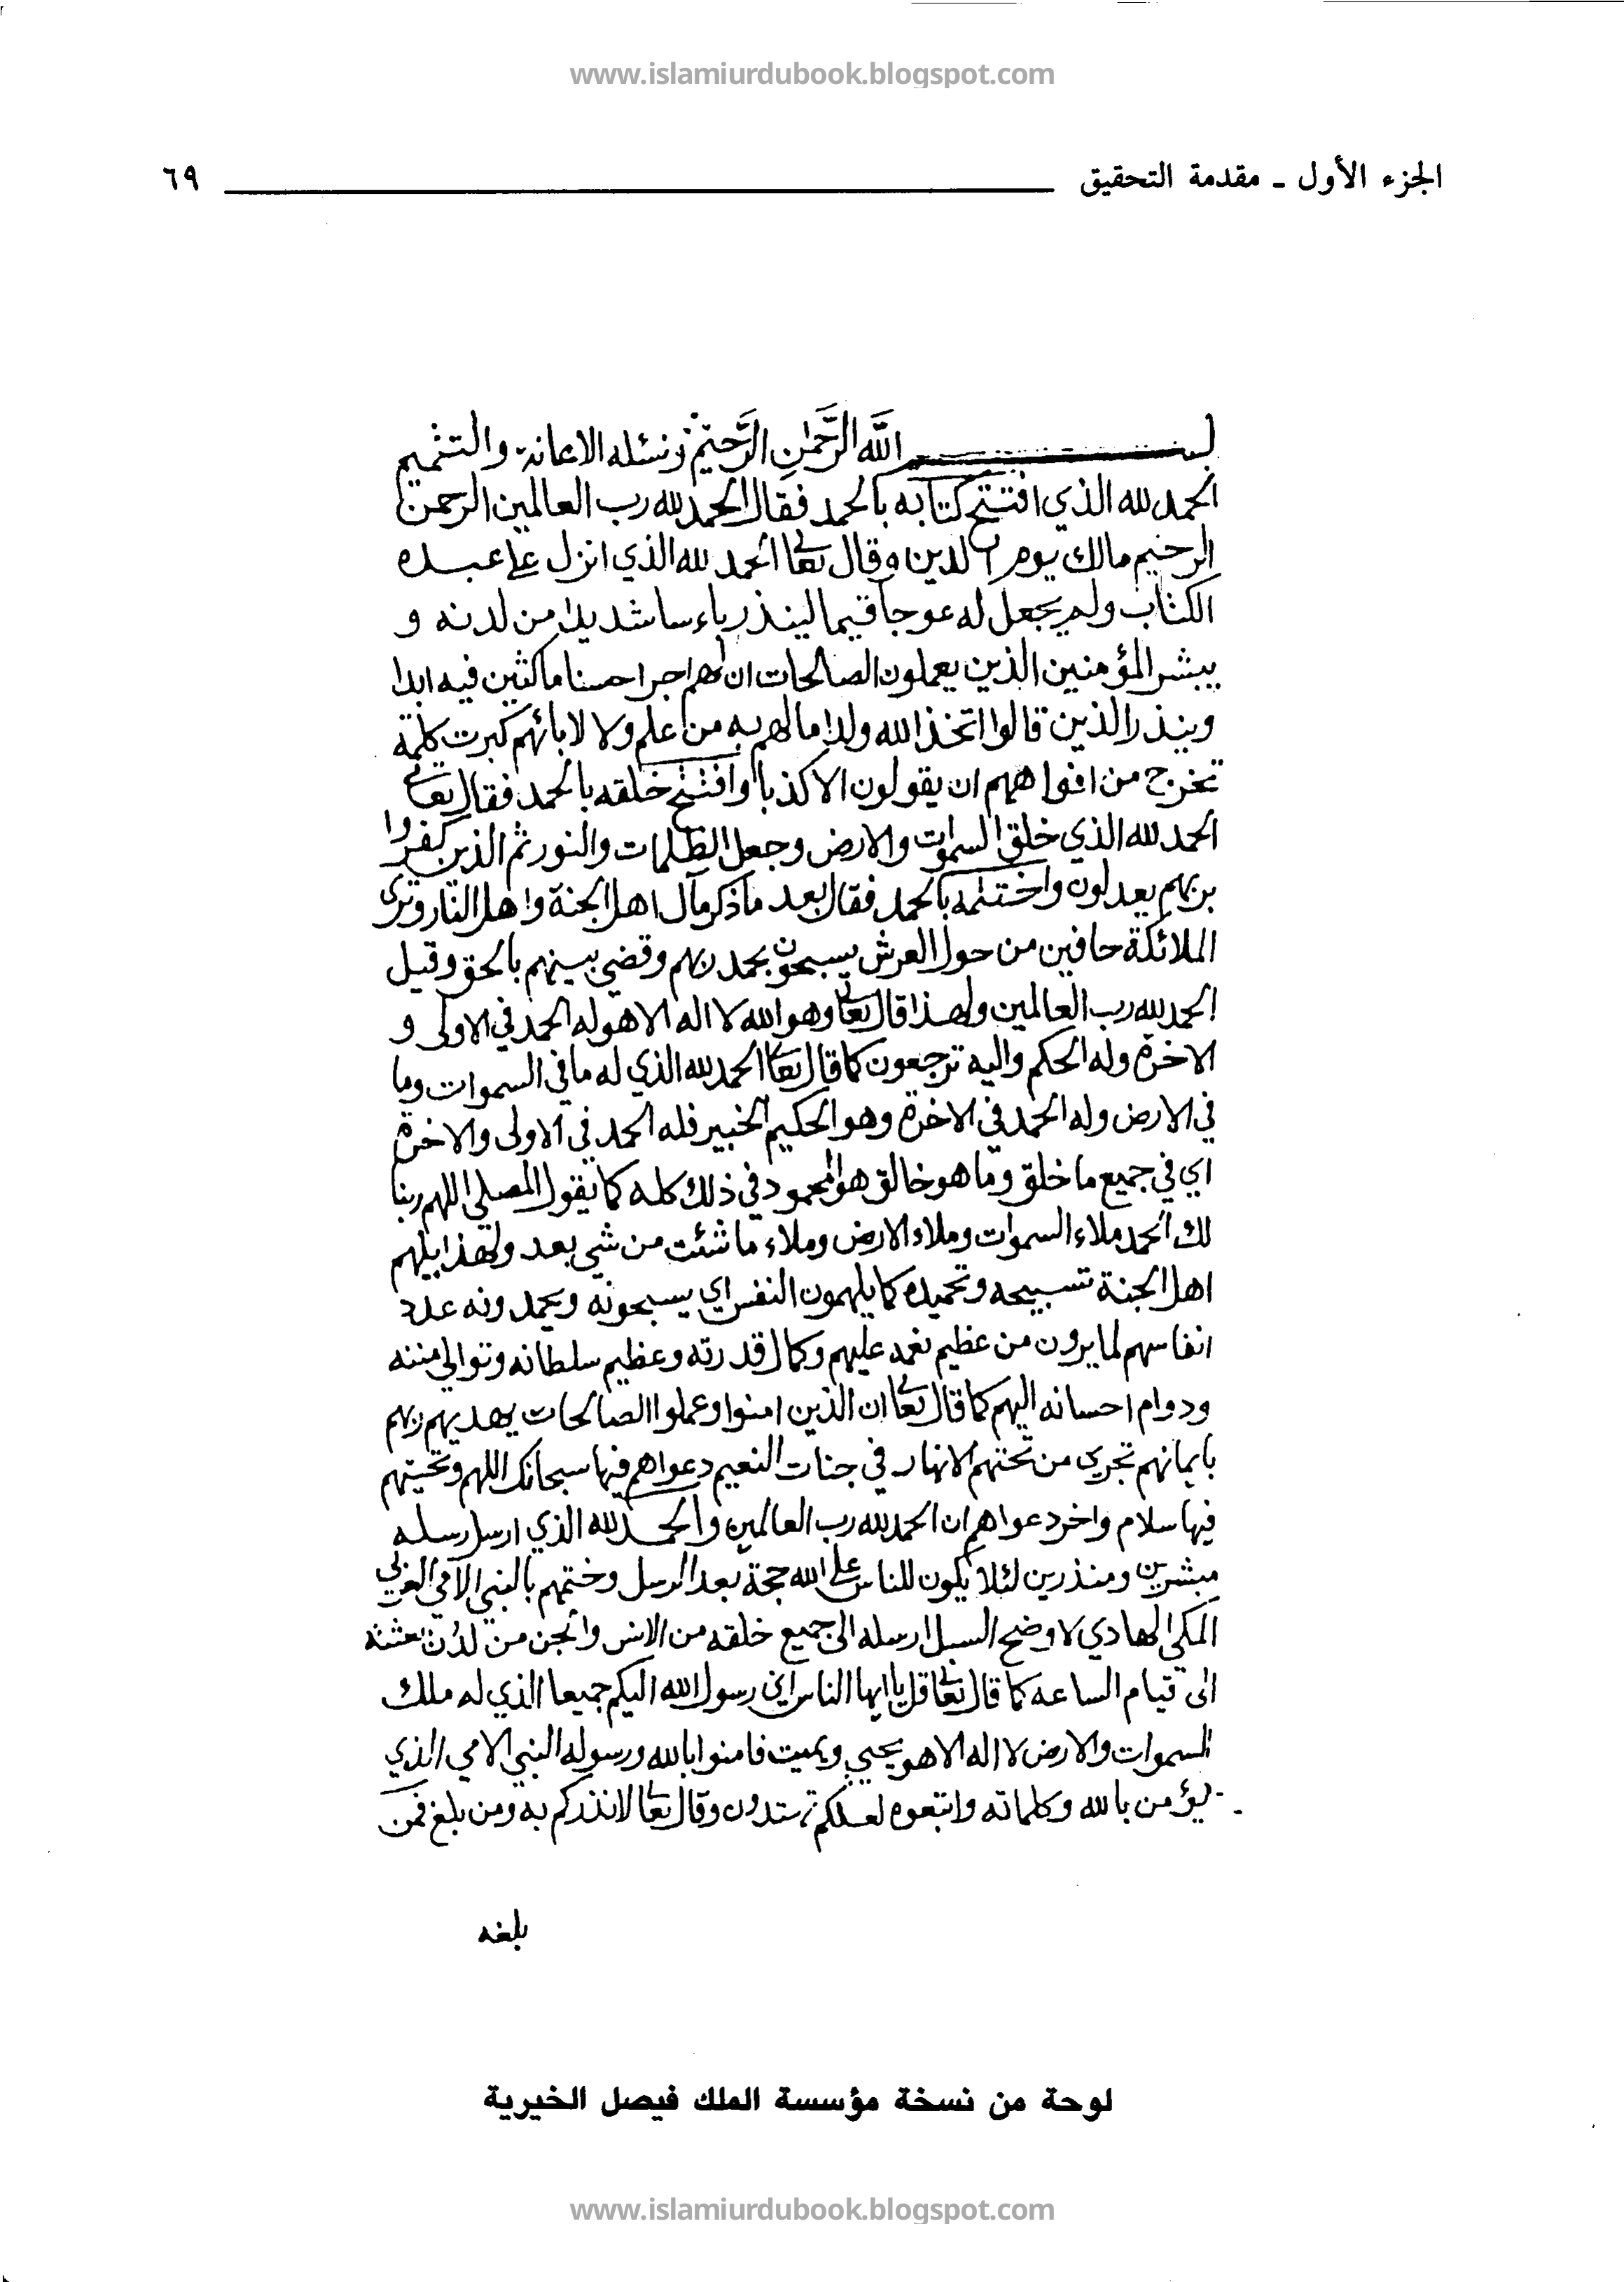 www.islamiurdubook.blogspot.com
الجزء الأول ـ مقدمة التحقيق ٦٩
بسم اللَّه الرَّحمٰن الرَّحيم ونسئله الاعانة والتتميم
الحمد لله الذي افتتح كتابه بالحمد فقال الحمد لله رب العالمين الرحمن
الرحيم مالك يوم الدين وقال تعالى الحمد لله الذي انزل على عبده
الكتاب ولم يجعل له عوجا قيما لينذر باءسا شديدا من لدنه و
يبشر المؤمنين الذين يعملون الصالحات ان لهم اجرا حسنا ماكثين فيه ابدا
وينذر الذين قالوا اتخذ الله ولدا مالهم به من علم ولا لابائهم كبرت كلمة
تخرج من افواههم ان يقولون الا كذبا وافتتح خلقه بالحمد فقال تعالى
الحمد لله الذي خلق السموات والارض وجعل الظلمات والنور ثم الذين كفروا
بربهم يعدلون واختتمه بالحمد فقال بعد ما ذكر مآل اهل الجنة واهل النار وترى
الملائكة حافين من حول العرش يسبحون بحمد ربهم وقضي بينهم بالحق وقيل
الحمد لله رب العالمين ولهذا قال تعالى وهو الله لا اله الا هو له الحمد في الاولى و
الاخرة وله الحكم واليه ترجعون كما قال تعالى الحمد لله الذي له ما في السموات وما
في الارض وله الحمد في الاخرة وهو الحكيم الخبير فله الحمد في الاولى والاخرة
اي في جميع ما خلق وما هو خالق هو المحمود في ذلك كله كما يقول المصلي اللهم ربنا
لك الحمد ملاء السموات وملاء الارض وملاء ما شئت من شي بعد ولهذا يلهم
اهل الجنة تسبيحه وتحميده كما يلهمون النفس اي يسبحونه ويحمدونه عدد
انفاسهم لما يرون من عظيم نعمه عليهم وكمال قدرته وعظيم سلطانه وتوالي مننه
ودوام احسانه اليهم كما قال تعالى ان الذين امنوا وعملوا الصالحات يهديهم ربهم
بايمانهم تجري من تحتهم الانهار في جنات النعيم دعواهم فيها سبحانك اللهم وتحيتهم
فيها سلام واخر دعواهم ان الحمد لله رب العالمين والحمد لله الذي ارسل رسله
مبشرين ومنذرين لئلا يكون للناس على الله حجة بعد الرسل وختمهم بالنبي الامي العربي
المكي الهادي لاوضح السبل ارسله الى جميع خلقه من الانس والجن من لدن بعثته
الى قيام الساعه كما قال تعالى قل يا ايها الناس اني رسول الله اليكم جميعا الذي له ملك
السموات والارض لا اله الا هو يحيي ويميت فامنوا بالله ورسوله النبي الامي الذي
يؤمن بالله وكلماته واتبعوه لعلكم تهتدون وقال تعالى لانذركم به ومن بلغ فمن
بلغه
لوحة من نسخة مؤسسة الملك فيصل الخيرية
www.islamiurdubook.blogspot.com